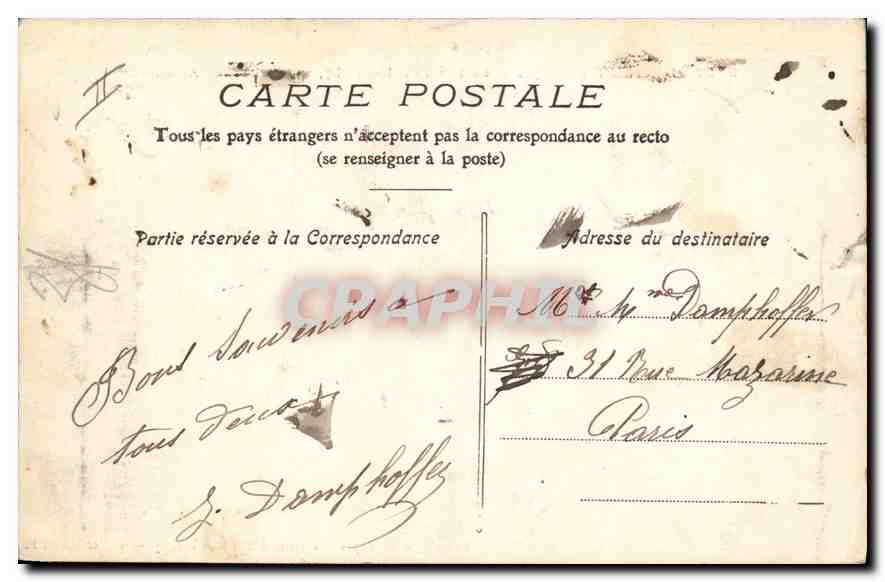 II
CARTE POSTALE
Tous les pays étrangers n'acceptent pas la correspondance au recto
(se renseigner à la poste)
Partie réservée à la Correspondance
Bons souvenirs a
tous deux
J. Damphoffer
Adresse du destinataire
Mr & Mme Damphoffer
31 Rue Mazarine
Paris
CPAPHIL